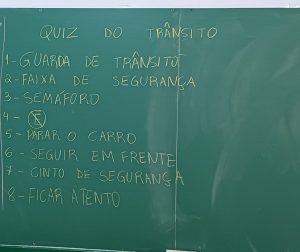 QUIZ DO TRÂNSITO
1- GUARDA DE TRÂNSITO
2- FAIXA DE SEGURANÇA
3- SEMÁFORO
4- E
5- PARAR O CARRO
6- SEGUIR EM FRENTE
7- CINTO DE SEGURANÇA
8- FICAR ATENTO